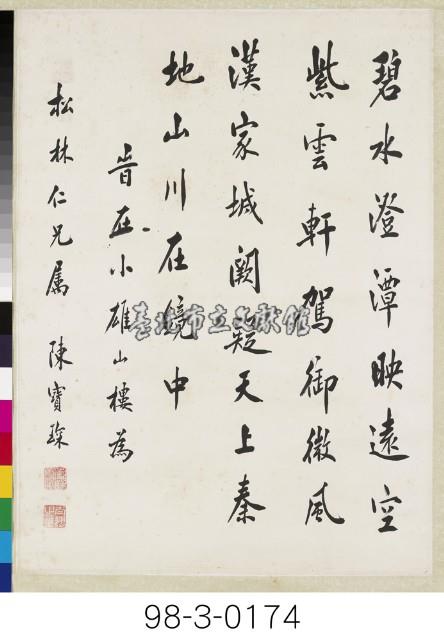 碧水澄潭映遠空
紫雲軒駕御微風
漢家城闕疑天上秦
地山川在鏡中
旹在小雄山樓為
松林仁兄屬 陳寶琛
臺北市立文獻館
98-3-0174